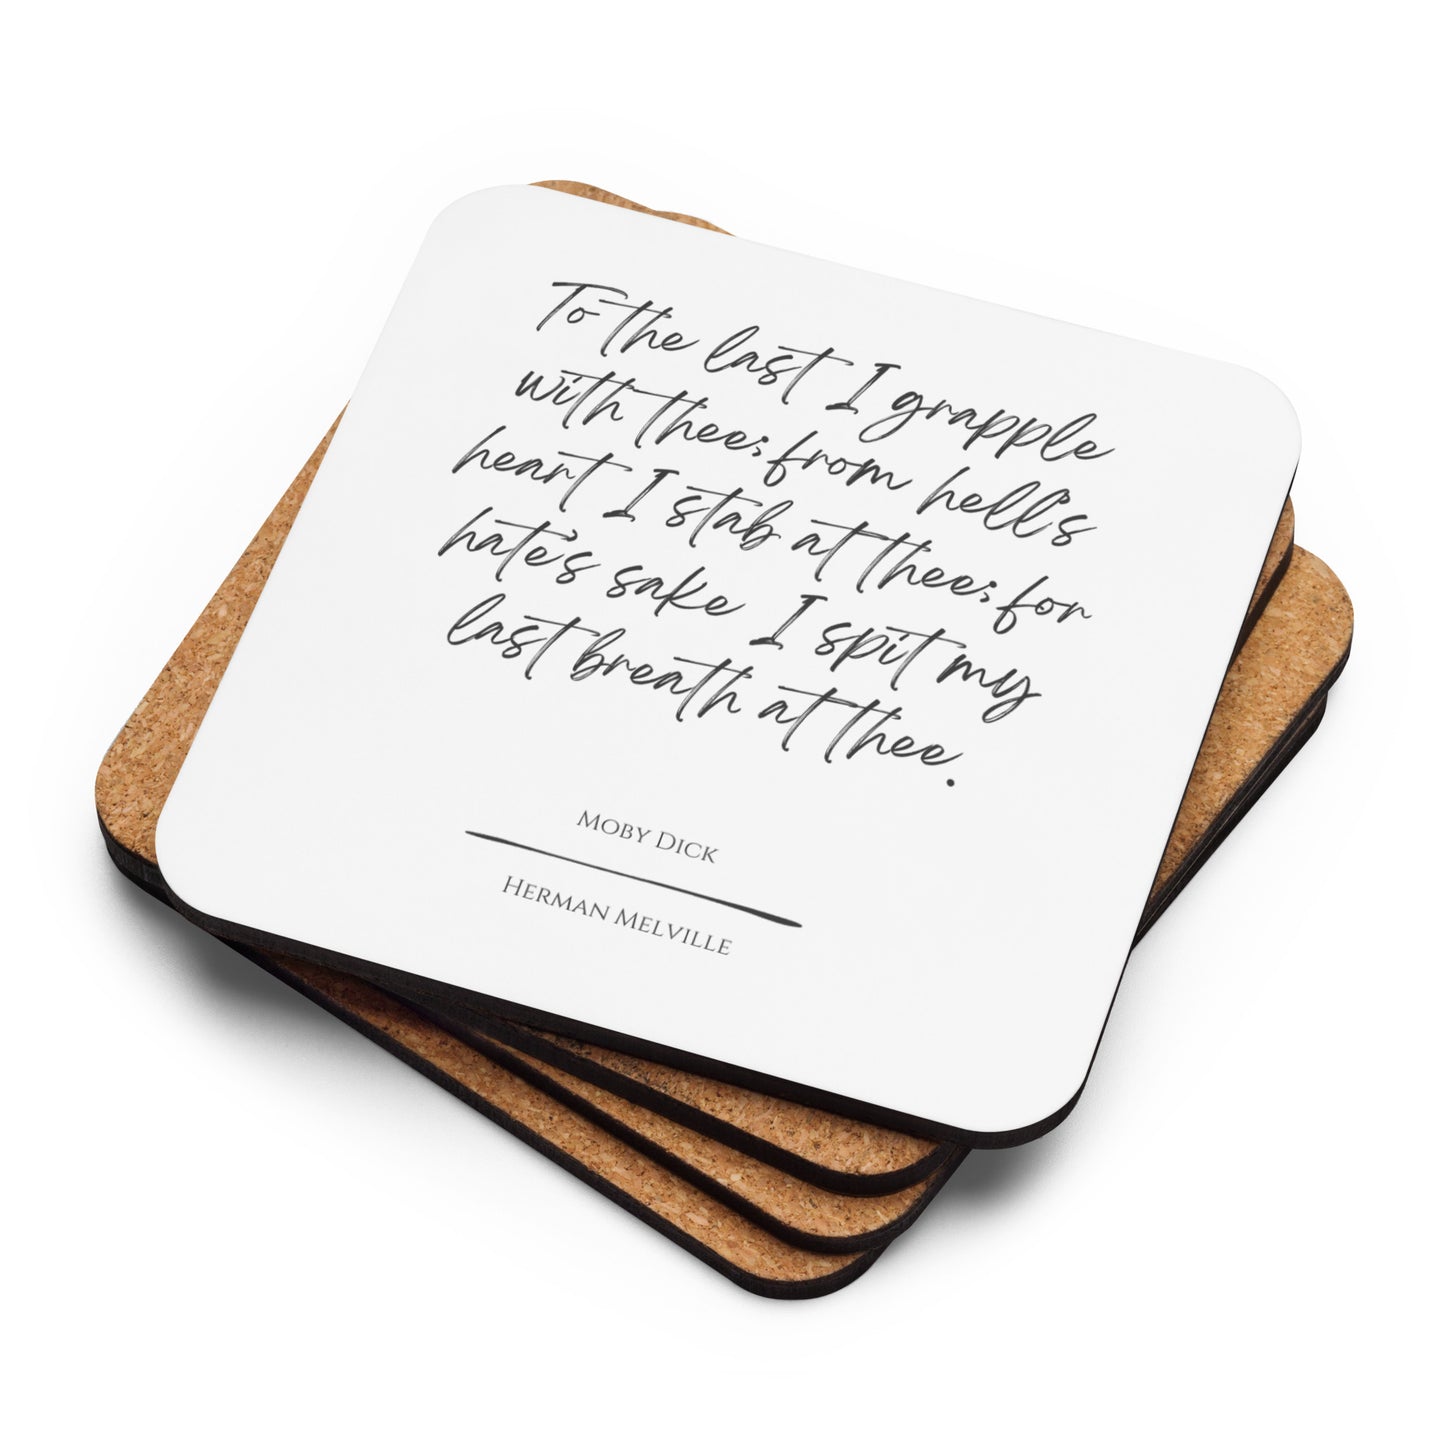 To the last I grapple
with thee; from hell's
heart I stab at thee; for
hate's sake I spit my
last breath at thee.
Moby Dick
Herman Melville